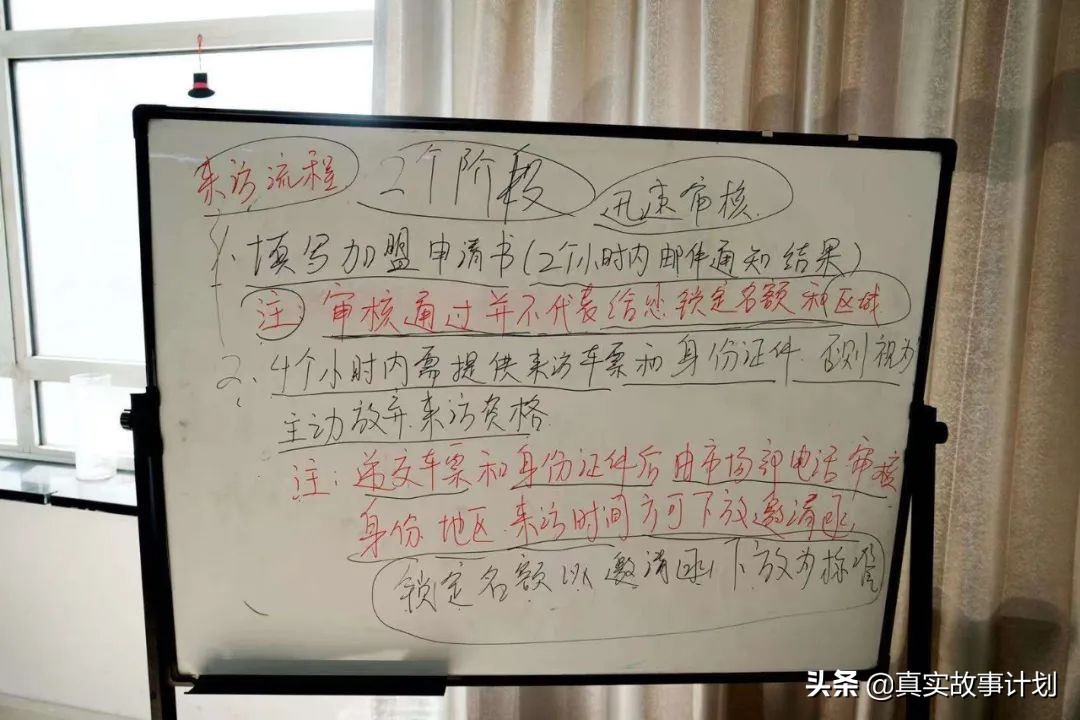 来访流程 2个阶段 迅速审核
1、填写加盟申请书(2个小时内邮件通知结果)
注: 审核通过并不代表给您锁定名额和区域
2、4个小时内需提供来访车票和身份证件.否则视为
主动放弃来访资格
注:递交车票和身份证件后由市场部电话审核
身份.地区.来访时间方可下放邀请函,
锁定名额以邀请函下放为标准
头条 @真实故事计划